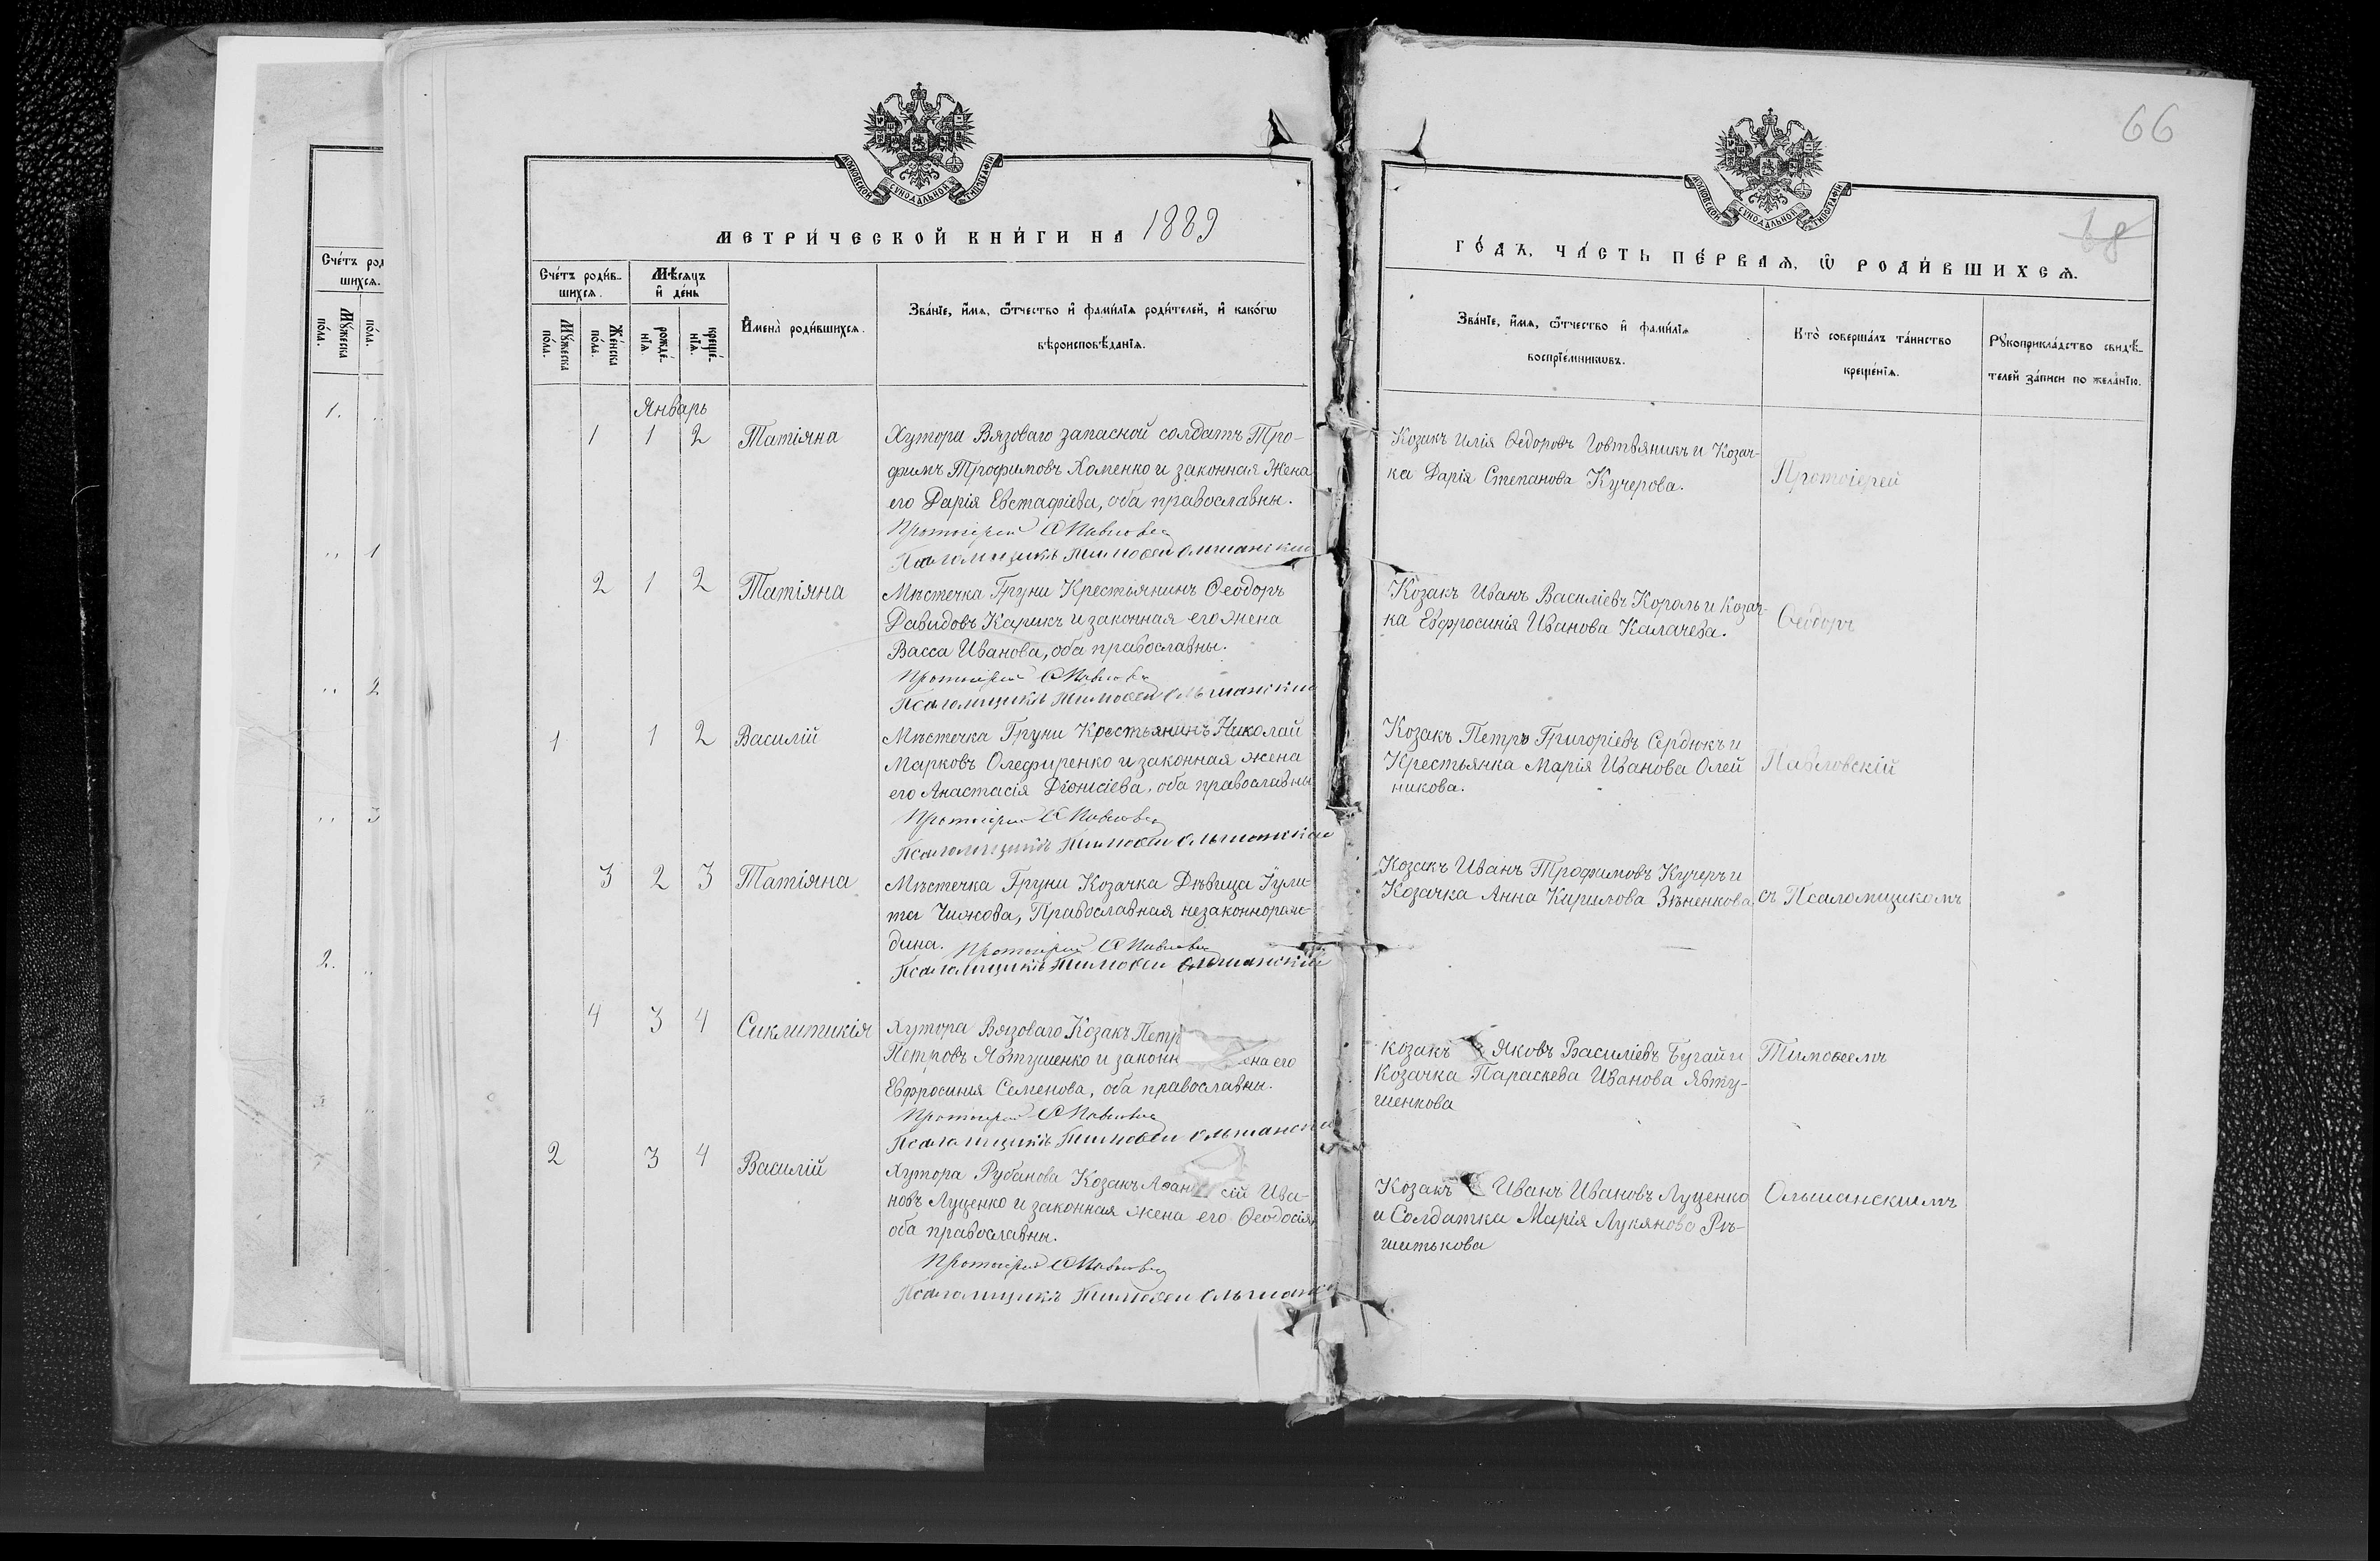 66
МОСКОВСКОЙ СѴНОДАЛЬНОЙ ТИПОГРАФІИ
МОСКОВСКОЙ СѴНОДАЛЬНОЙ ТИПОГРАФІИ
МЕТРИ́ЧЕСКОЙ КНИ́ГИ НА 1889
ГО́ДЪ, ЧА́СТЬ ПЕ́РВАЯ, Ѡ РОДИ́ВШИХСЯ.
Сче́тъ род
шихся.
Мꙋ́жеска
по́ла.
по́ла.
1. „
„ 1
„ 2
„ 3
2. „
Сче́тъ роди́в-
шихся.
Мѣ́сяцъ
и҆ де́нь
Мꙋ́жеска
по́ла.
Же́нска
по́ла.
рожде́-
нїя.
креще́-
нїя.
И҆мена̀ роди́вшихся.
Зва́нїе, и҆́мя, ѻ҆́тчество и҆ фами́лїя роди́телей, и҆ како́гѡ
вѣроисповѣ́данїя.
Зва́нїе, и҆́мя, ѻ҆́тчество и҆ фами́лїя
воспрїе́мникѡвъ.
Кто̀ соверша́лъ та́инство
креще́нїя.
Рꙋкоприкла́дство свидѣ́-
телей за́писи по жела́нїю.
Январь
1 1 2 Татіяна
Хутора Вязоваго запасной солдатъ Тро-
фимъ Трофимовъ Хоменко и законная жена
его Дарія Евстафіева, оба православны.
Протоіерей
Псаломщикъ Тимоѳей Ольшанский
Козакъ Илія Ѳедоровъ Говтвяникъ и Козач-
ка Дарія Степанова Кучерова.
Протоіерей
2 1 2 Татіяна
Мѣстечка Груни Крестьянинъ Ѳеодоръ
Давидовъ Карикъ и законная его жена
Васса Иванова, оба православны.
Протоіерей
Псаломщикъ Тимоѳей Ольшанский
Козакъ Иванъ Василіевъ Король и Козач-
ка Евфросинія Иванова Калачева.
Ѳеодоръ
1 1 2 Василій
Мѣстечка Груни Крестьянинъ Николай
Марковъ Олефиренко и законная жена
его Анастасія Діонисіева, оба православны
Протоіерей
Псаломщикъ Тимоѳей Ольшанский
Козакъ Петръ Григоріевъ Сердюкъ и
Крестьянка Марія Иванова Олей
никова.
Павловскій
3 2 3 Татіяна
Мѣстечка Груни Козачка Дѣвица Іули-
та Чижова, Православная незаконнорож-
дина. Протоіерей
Псаломщикъ Тимоѳей Ольшанский
Козакъ Иванъ Трофимовъ Кучеръ и
Козачка Анна Кирилова Зѣненкова
съ Псаломщикомъ
4 3 4 Сиклитикія
Хутора Вязоваго Козакъ Петр
Петровъ Явтушенко и законн ена его
Евфросинія Семенова, оба православны.
Протоіерей
Псаломщикъ Тимоѳей Ольшанский
козакъ Яковъ Василіевъ Бугай и
Козачка Параскева Иванова Явту-
шенкова
Тимоѳеемъ
2 3 4 Василій
Хутора Рубанова Козакъ Аѳан сій Ива-
новъ Луценко и законная жена его Ѳеодосія
оба православны.
Протоіерей
Псаломщикъ Тимоѳей Ольшанск
Козакъ Иванъ Ивановъ Луценко
и Солдатка Марія Лукянова Рѣ-
шитькова
Ольшанскимъ